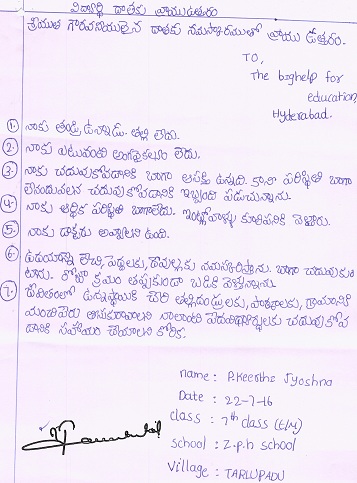 విద్యార్థి దాతకు వ్రాయుఉత్తరం
శ్రీయుత గౌరవనీయులైన దాతకు నమస్కారములతో వ్రాయు ఉత్తరం.
TO,
The bighelp for
education,
Hyderabad.
1. నాకు తండ్రి ఉన్నాడు. తల్లి లేదు.
2. నాకు ఎటువంటి అంగవైకల్యం లేదు.
3. నాకు చదువుకోవడానికి బాగా ఆసక్తి ఉన్నది. కానీ పరిస్థితి బాగా
లేనందువలన చదువుకోవడానికి ఇబ్బంది పడుచున్నాను.
4. నాకు ఆర్థిక పరిస్థితి బాగాలేదు. ఇంట్లోవాళ్ళు కూలిపనికి వెళ్తారు.
5. నాకు డాక్టరు అవ్వాలని ఉంది.
6. ఉదయాన్నే లేచి, పెద్దలకు, నమస్కరిస్తాను. బాగా చదువుకుం
టాను. రోజూ క్రమం తప్పకుండా బడికి వెళ్తున్నాను.
7. జీవితంలో ఉన్నతస్థాయికి చేరి తల్లిదండ్రులకు, పాఠశాలకు, గ్రామానికి
మంచిపేరు తీసుకురావాలని నాలాంటి పేదవిద్యార్థులకు చదువుకోవ
డానికి సహాయం చేయాలని కోరిక.
name : P.Keerthi Jyoshna
Date : 22-7-16
class : 7th class (E/M)
school : Z.p.h school
Village : TARLUPADU